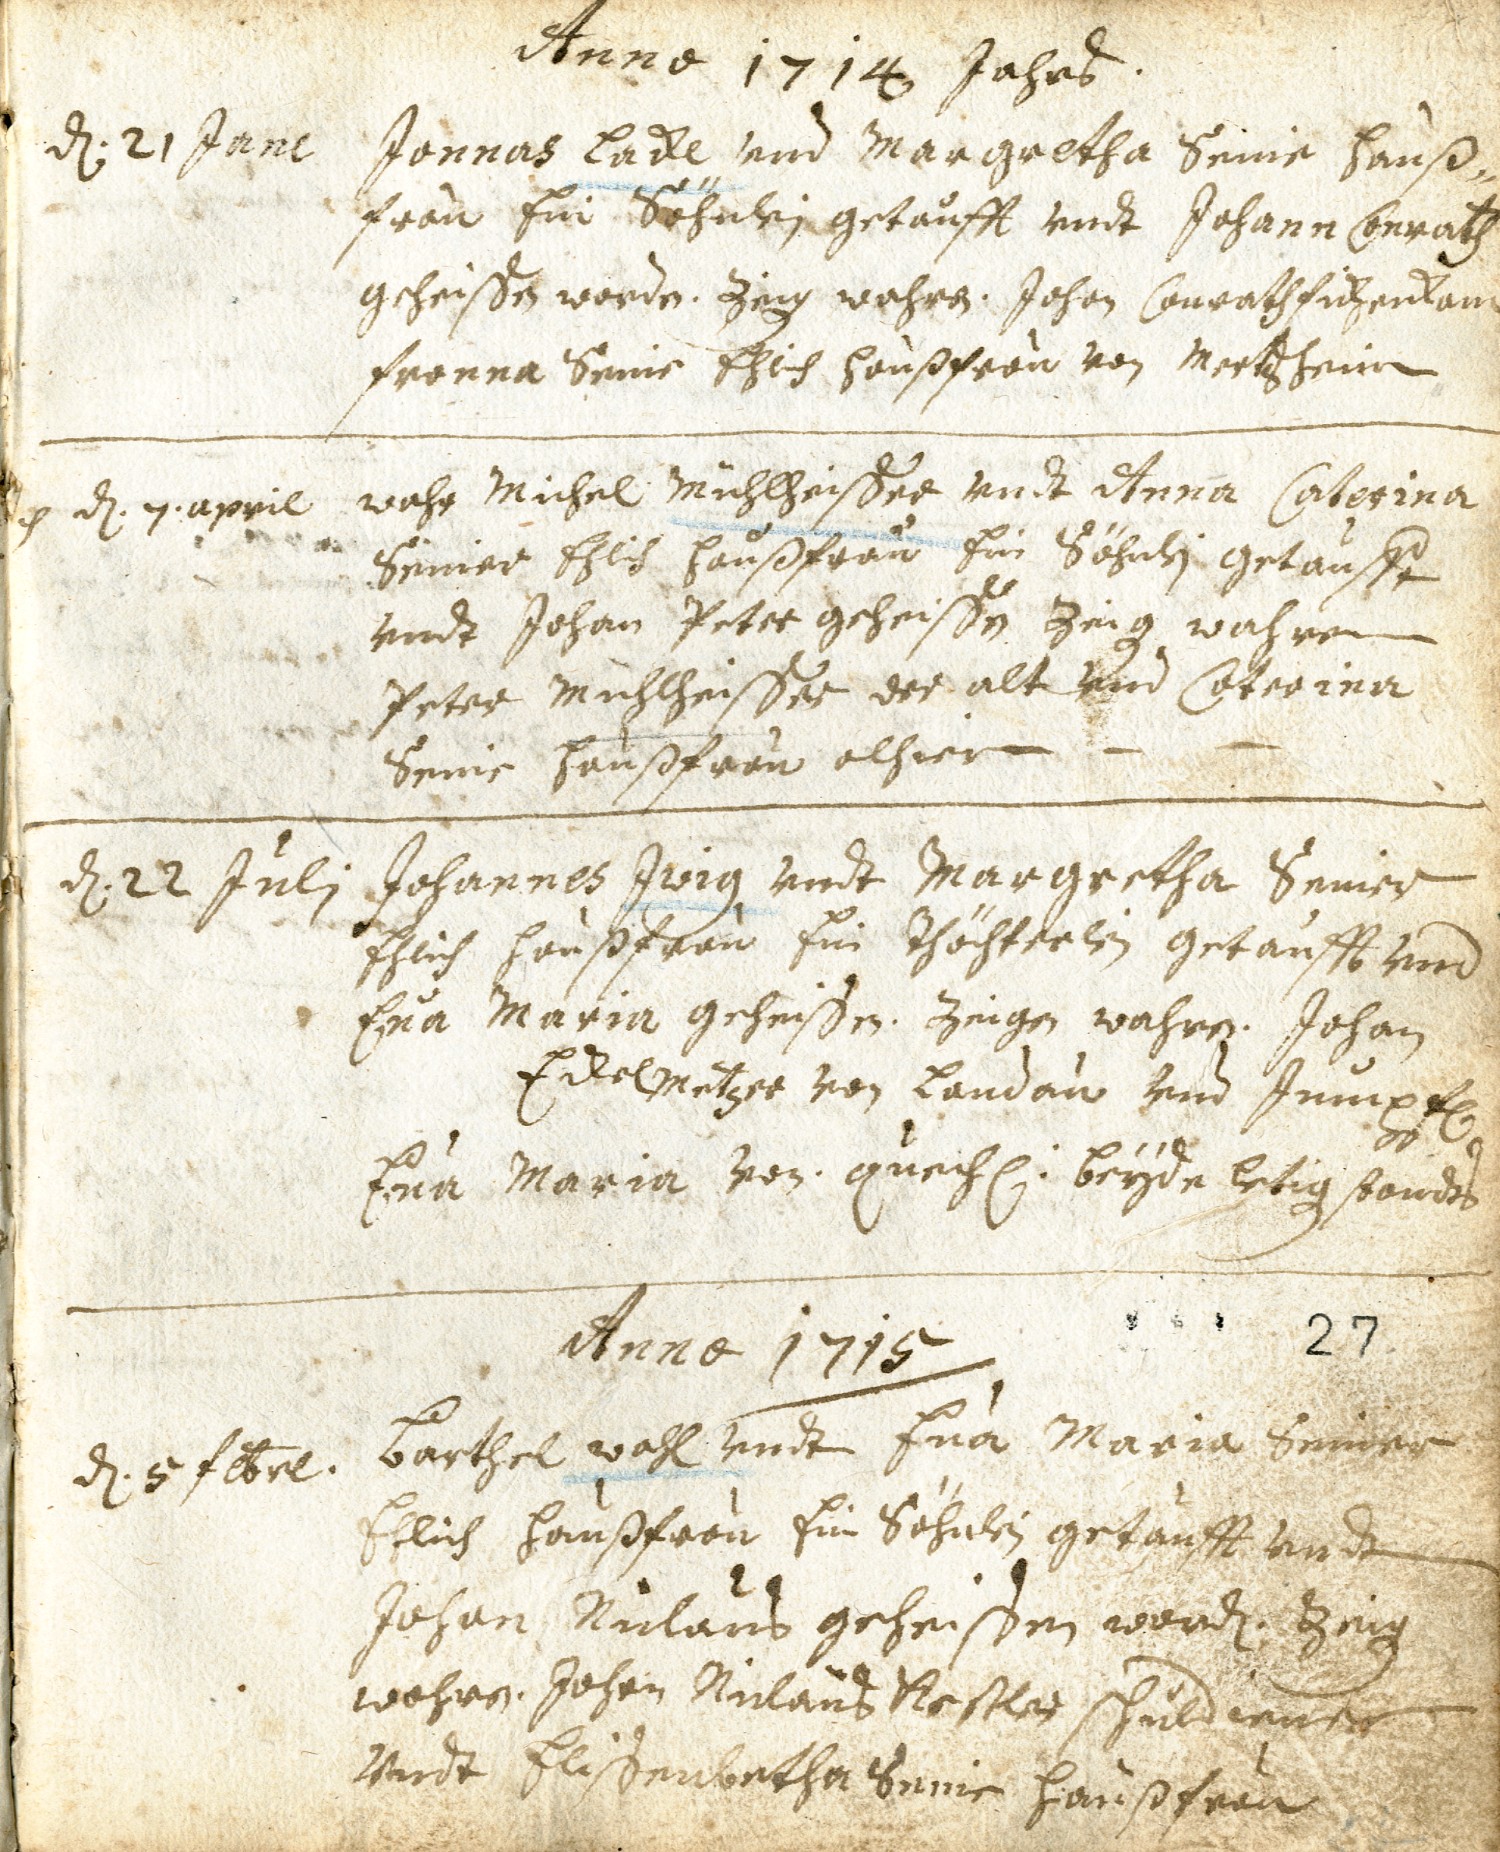 Anno 1714 Jahrs.
d. 21 Jane Jonnas Lade und Margretha Seine hauß„
frau Ein Söhnlej getaufft undt Johann Conrath
geheissen worden. Zeig wahren. Johan Conrath
fronna Seine Ehlich haußfrau von Mertzheim
d. 7. april wahr Michel Mühlheisser undt Anna Caterina
Seiner Ehlich haußfrau Ein Söhnlej getaufft
undt Johan Peter geheissen Zeig wahren
Peter Mühlheisser der alt und Caterina
Seine haußfrau alhier — — —
d. 22 Julj Johannes Jwig undt Margretha Seiner
Ehlich haußfrau Ein Thöchterlein getaufft und
Eva Maria geheissen. Zeigen wahren. Johan
Edel Metzger von Landau und
Eva Maria von. queich. beÿde letig standts
Anno 1715
27
d. 5 febrl. Barthel wohl undt Eva Maria Seiner
Ehlich haußfrau Ein Söhnlej getaufft undt
Johan Niclaus geheissen word. Zeig
wahren. Johan Niclaus Kessler schuldiener
undt Elissenbetha Seine haußfrau